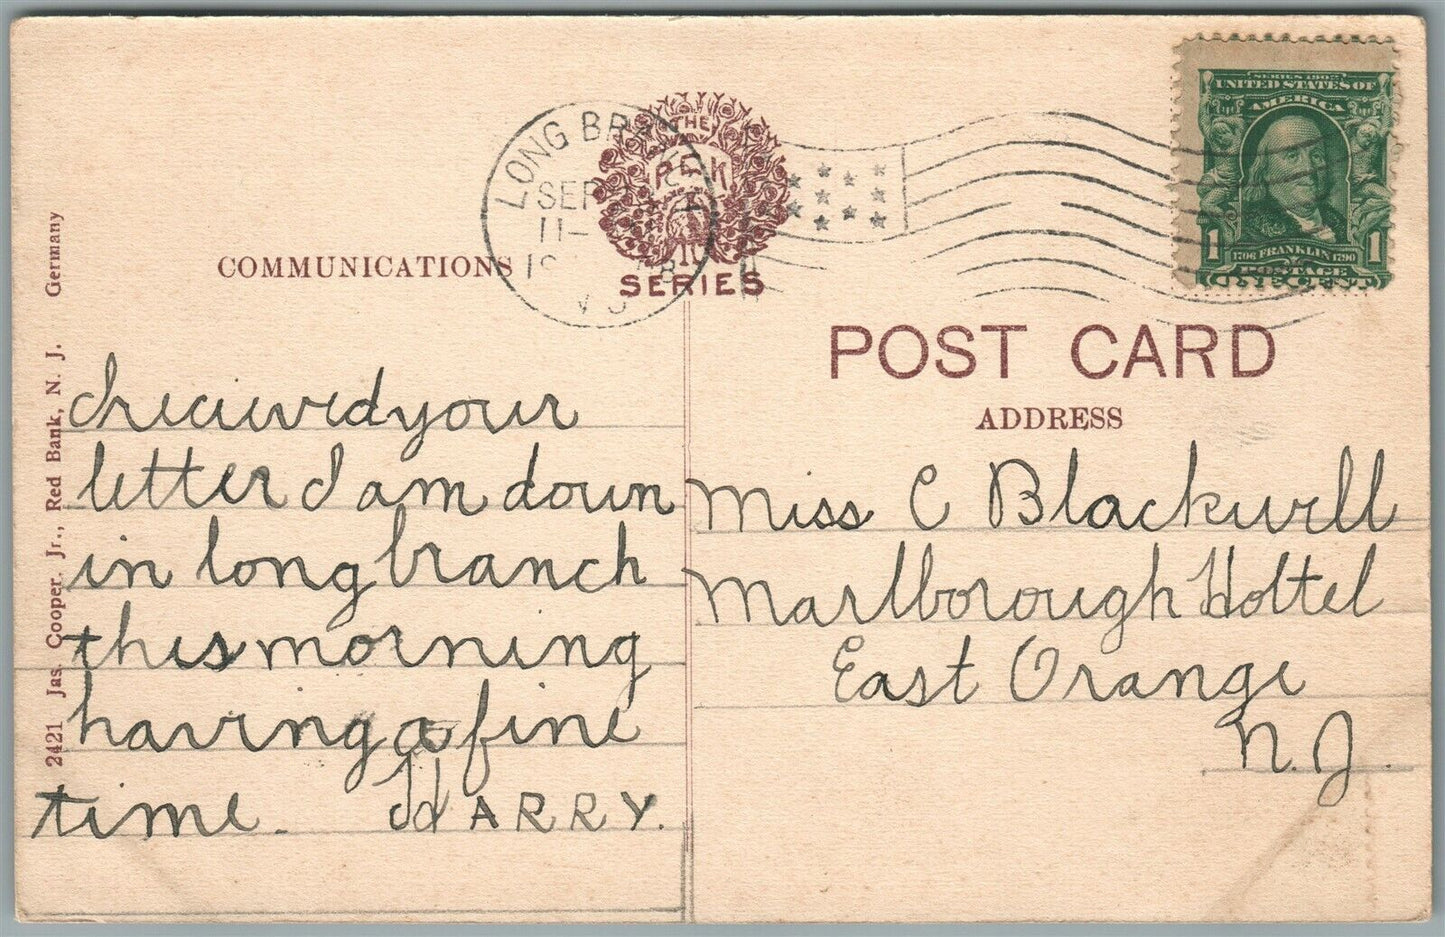 THE
SERIES
LONG BR
SEP
11-
COMMUNICATIONS
SERIES 1902
UNITED STATES OF
AMERICA
1 1
1706 FRANKLIN 1790
POSTAGE
ONE CENT
POST CARD
ADDRESS
2421 Jas. Cooper, Jr., Red Bank, N. J. Germany
I recieved your
letter I am down
in long branch
this morning
having a fine
time.
HARRY.
Miss C Blackwell
Marlborough Hottel
East Orange
N. J.